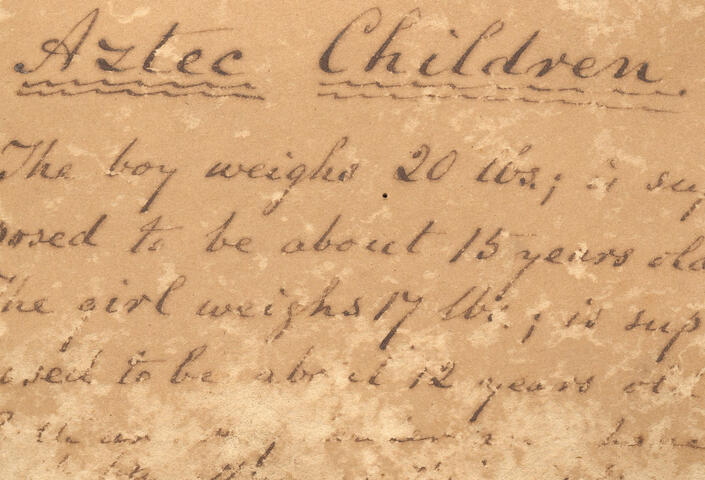 Aztec Children.
The boy weighs 20 lbs.; is sup
posed to be about 15 years old
The girl weighs 17 lbs.; is sup
osed to be about 12 years old